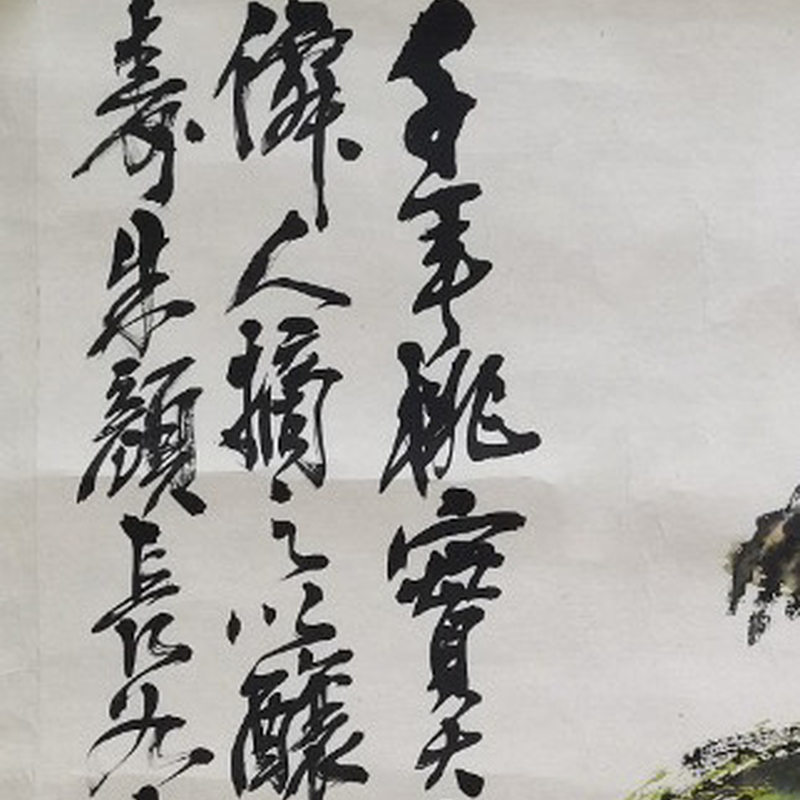 千年桃實大
僊人摘之以釀
壽朱顏長